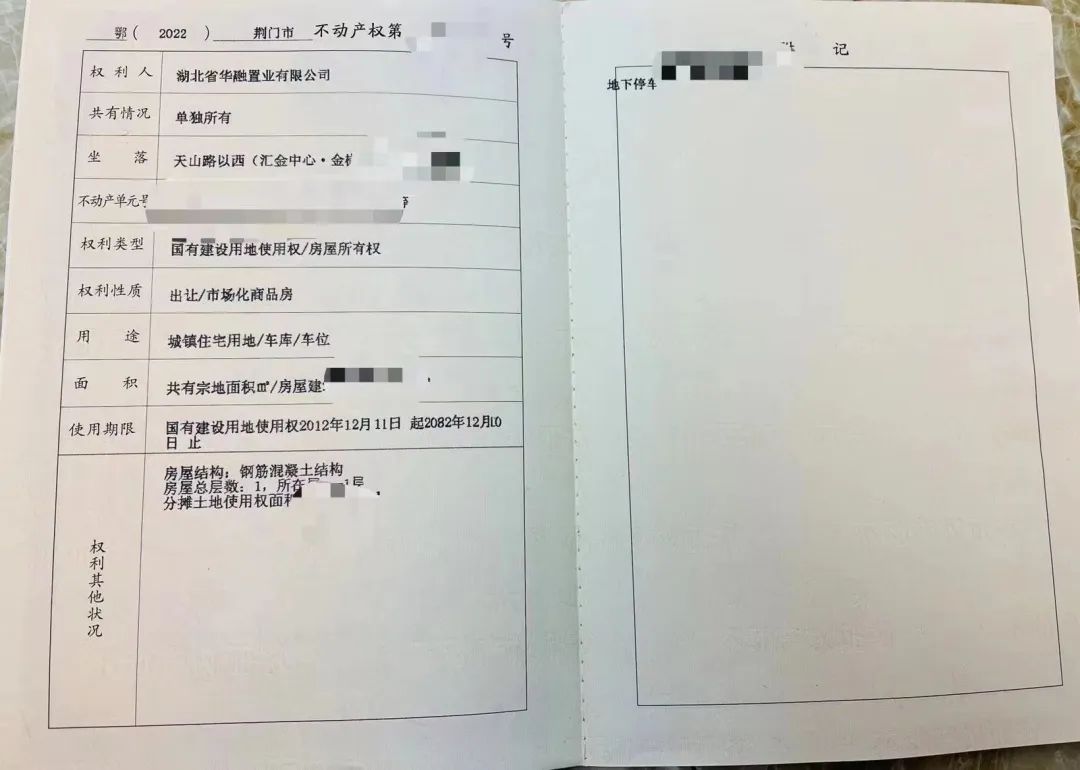 鄂( 2022 ) 荆门市 不动产权第 号
权利人 湖北省华融置业有限公司
共有情况 单独所有
坐落 天山路以西（汇金中心·金
不动产单元号
权利类型 国有建设用地使用权/房屋所有权
权利性质 出让/市场化商品房
用途 城镇住宅用地/车库/车位
面积 共有宗地面积㎡/房屋建
使用期限 国有建设用地使用权2012年12月11日 起2082年12月10
日 止
权利其他状况
房屋结构：钢筋混凝土结构
房屋总层数：1，所在层
分摊土地使用权面积
记
地下停车